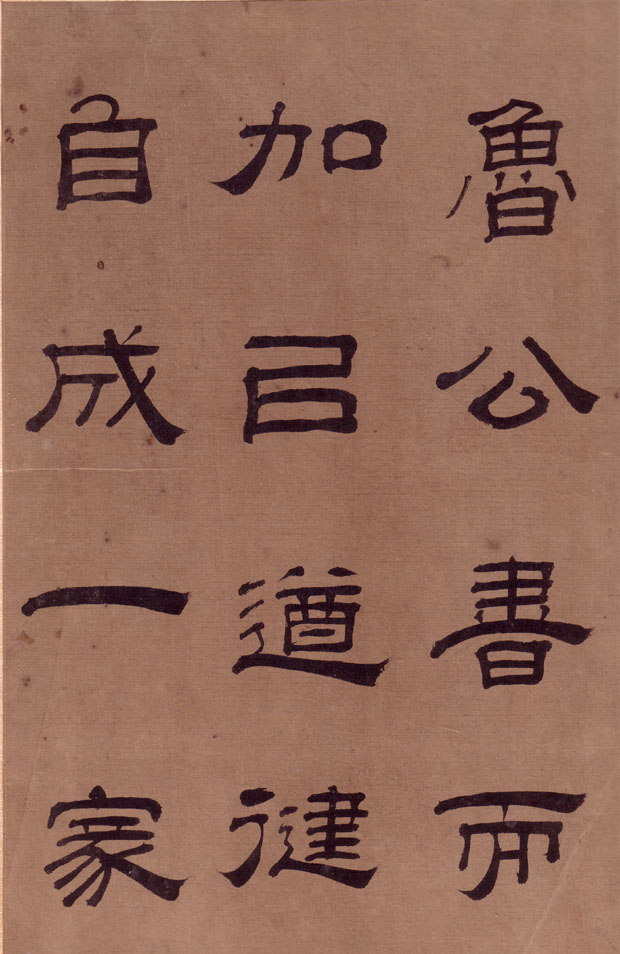 魯公書而
加㠯遒健
自成一家